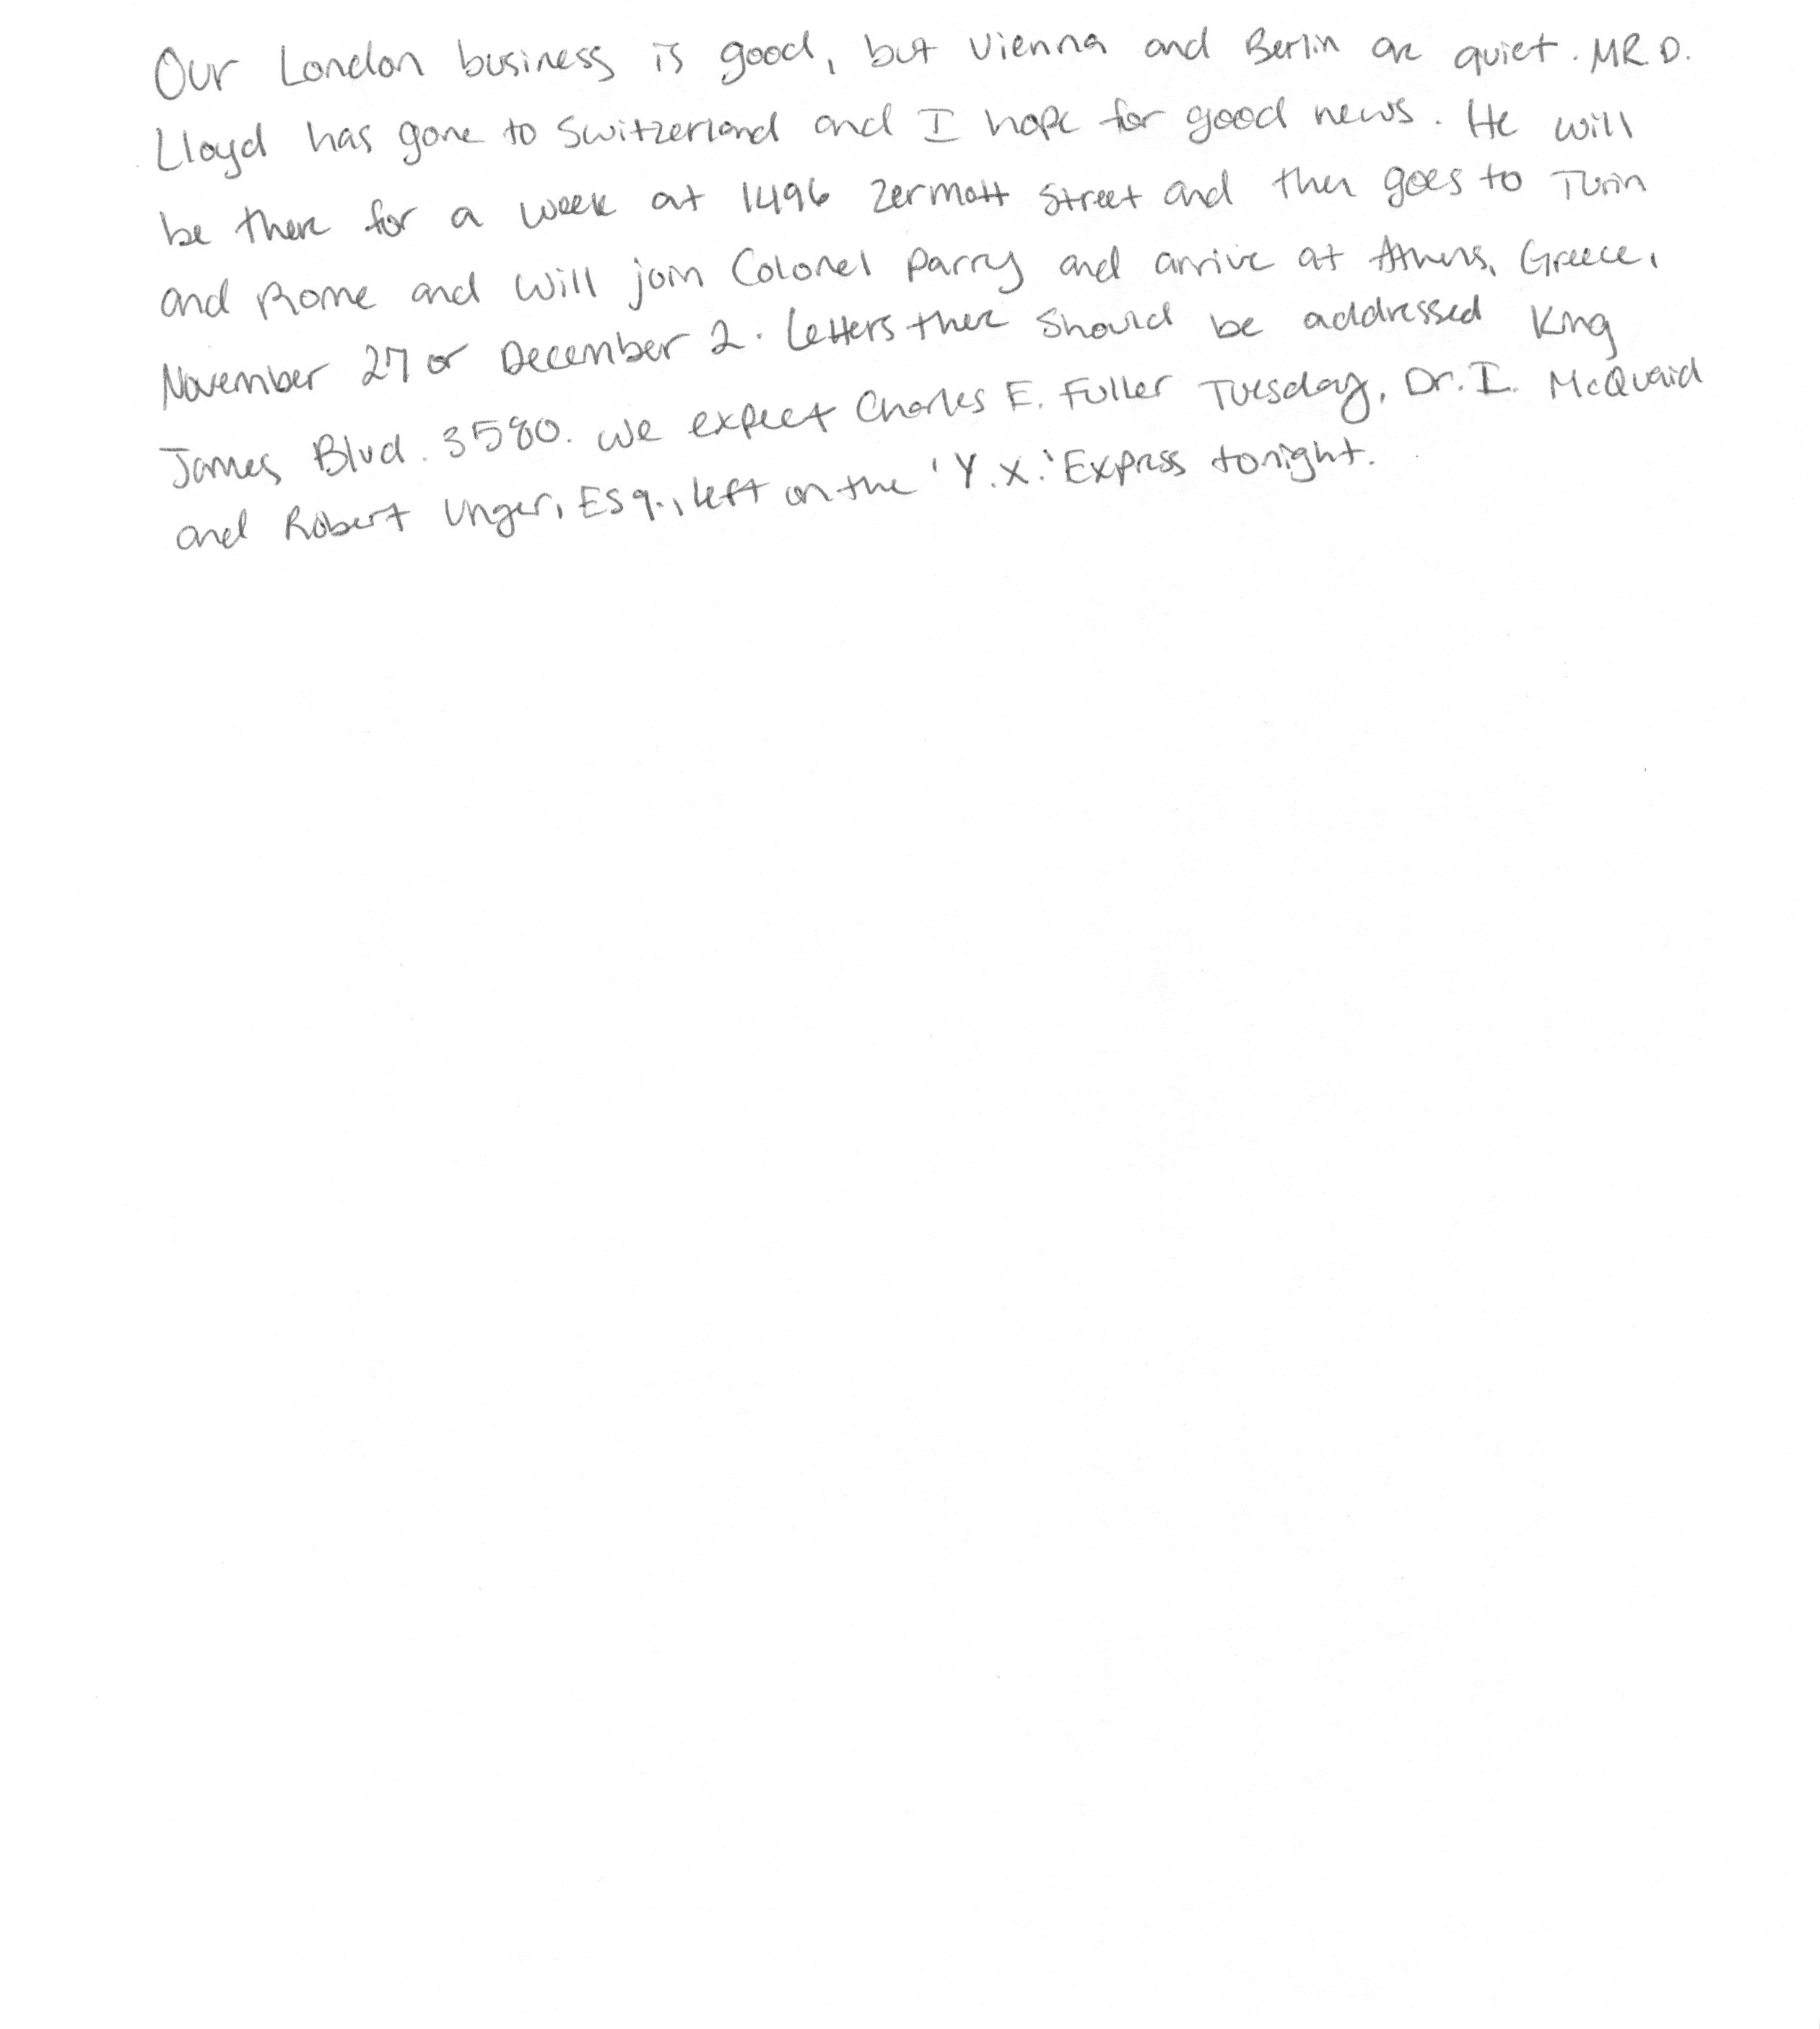 Our London business is good, but Vienna and Berlin are quiet. MR. D.
Lloyd has gone to Switzerland and I hope for good news. He will
be there for a week at 1496 Zermott Street and then goes to Turin
and Rome and will join Colonel Parry and arrive at Athens, Greece,
November 27 or December 2. Letters there should be addressed King
James Blvd. 3580. We expect Charles E. Fuller Tuesday, Dr. I. McQuaid
and Robert Unger, Esq., left on the 'Y.X.' Express tonight.